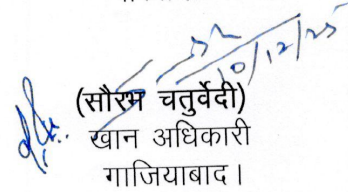 10/12/25
(सौरभ चतुर्वेदी)
खान अधिकारी
गाजियाबाद।